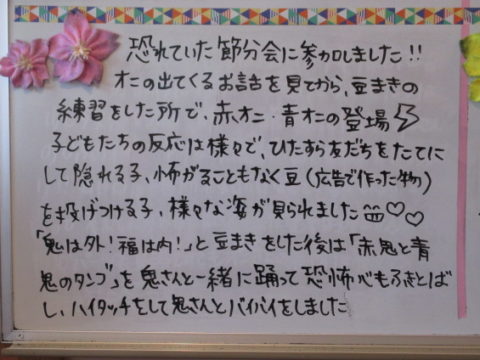 恐れていた節分会に参加しました!!
オニの出てくるお話を見てから、豆まきの
練習をした所で、赤オニ・青オニの登場
子どもたちの反応は様々で、ひたすら友だちをたてに
して隠れる子、怖がることもなく豆(広告で作った物)
を投げつける子、様々な姿が見られました♡♡
「鬼は外!福は内!」と豆まきをした後は「赤鬼と青
鬼のタンゴ」を鬼さんと一緒に踊って恐怖心もふきとば
し、ハイタッチをして鬼さんとバイバイをしました